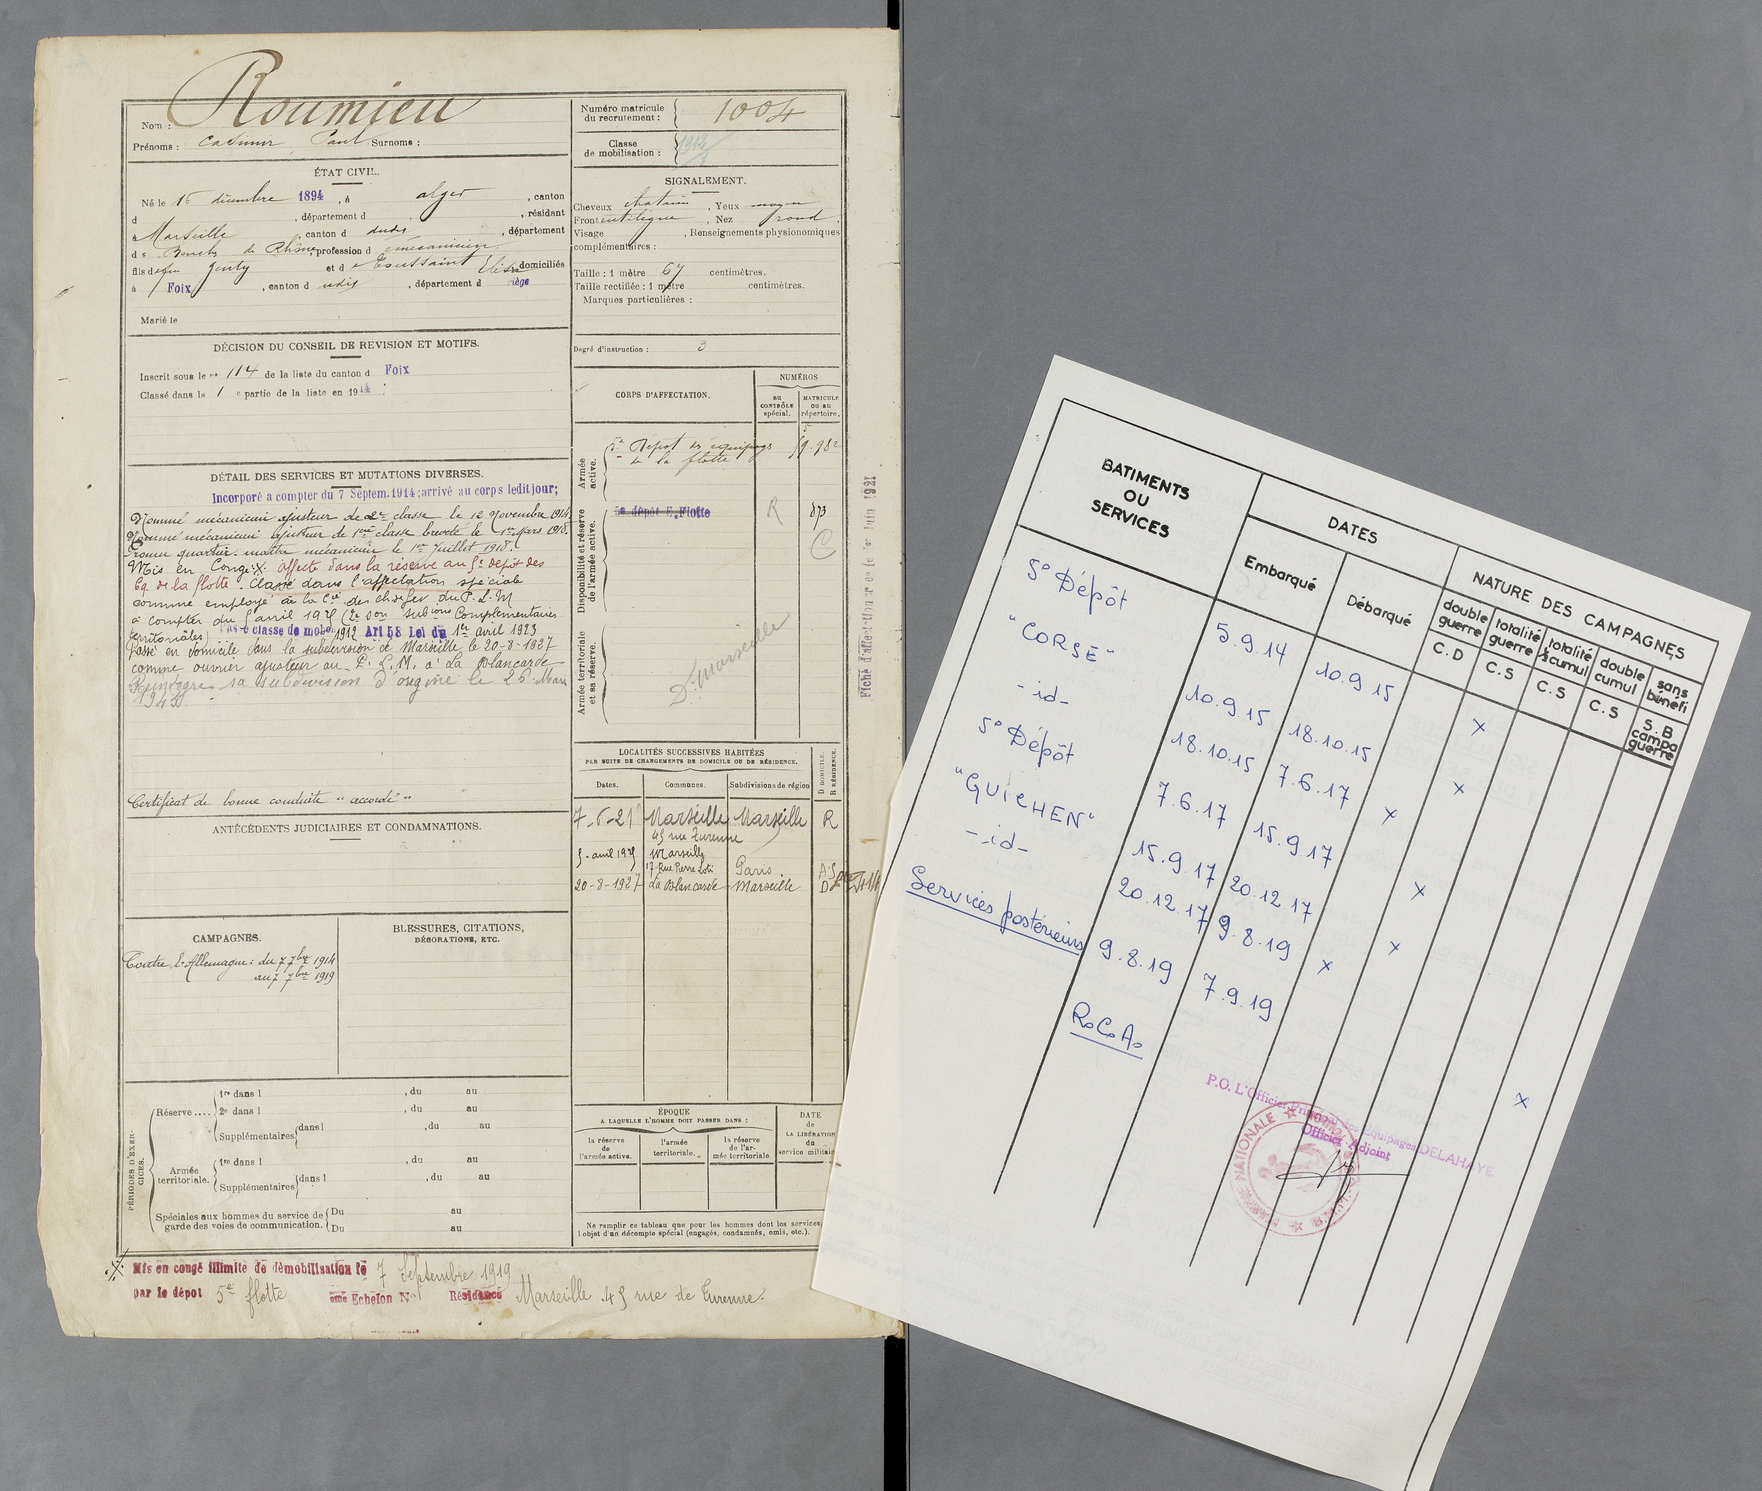 Roumieu
Nom :
Prénoms : Casimir, Paul Surnoms :
ÉTAT CIVIL.
Né le 16 décembre 1894, à alger, canton
d , département d , résidant
à Marseille, canton d dudit, département
des Bouches du Rhône, profession d mécanicien
fils de feu Genty et de Toussaint Elisa domiciliés
à Foix, canton d udit, département d riège
Marié le
DÉCISION DU CONSEIL DE REVISION ET MOTIFS.
Inscrit sous le no 114 de la liste du canton d Foix
Classé dans la 1 e partie de la liste en 1914.
DÉTAIL DES SERVICES ET MUTATIONS DIVERSES.
Incorporé a compter du 7 Septem. 1914 ; arrivé au corps ledit jour ;
Nommé mécanicien ajusteur de 2e classe le 12 Novembre 1914.
Nommé mécanicien ajusteur de 1ère classe breveté le 1er Mars 1918.
Promu quartier-maître mécanicien le 1er Juillet 1918.
Mis en Congé X. Affecté dans la réserve au 5e dépôt des
Eq. de la flotte. Classé dans l'affectation spéciale
comme employé à la Cie des chefer du P.L.M
à compter du 5 avril 1925 (2e Son Subions Complémentaires
territoriales) classe de mobon 1912 Art 58 Loi du 1er avril 1923
Passé en domicile dans la subdivision de Marseille, le 20-8-1927
comme ouvrier ajusteur au P.L.M. à La Blancarde
Réintégré sa subdivision d'origine le 26 Mars
Certificat de bonne conduite "accordé"
ANTÉCÉDENTS JUDICIAIRES ET CONDAMNATIONS.
CAMPAGNES.
Contre l'Allemagne : du 7 7bre 1914
au 7 7bre 1919
BLESSURES, CITATIONS,
DÉCORATIONS, ETC.
PÉRIODES D'EXERCICES.
Réserve....
1re dans l , du au
2e dans l , du au
Supplémentaires dans l , du au
Armée territoriale.
1re dans l , du au
Supplémentaires dans l , du au
Spéciales aux hommes du service de
garde des voies de communication.
Du au
Du au
Mis en congé illimité de démobilisation le 7 Septembre 1919
par le dépot 5e flotte ème Echelon No Résidence Marseille 45 rue de Turenne.
Numéro matricule
du recrutement : 1004
Classe
de mobilisation :
SIGNALEMENT.
Cheveux chatain, Yeux moyen
Front , Nez rond,
Visage , Renseignements physionomiques
complémentaires :
Taille : 1 mètre 67 centimètres.
Taille rectifiée : 1 mètre centimètres.
Marques particulières :
Degré d'instruction : 3
CORPS D'AFFECTATION.
NUMÉROS
au contrôle spécial.
MATRICULE ou au répertoire.
Armée active.
5e Dépôt des équipages
de la flotte
Disponibilité et réserve
de l'armée active.
5e dépôt E. Flotte
R
873
C
Armée territoriale
et sa réserve.
D. Marseille
LOCALITÉS SUCCESSIVES HABITÉES
PAR SUITE DE CHANGEMENTS DE DOMICILE OU DE RÉSIDENCE.
Dates. Communes. Subdivisions de région D DOMICILE. R RÉSIDENCE.
7-6-21 Marseille Marseille R
45 rue Turenne
5-avril 1925 Marseille
17 Rue Pierre Loti Paris A.S
20-8-1927 La Blancarde Marseille D
ÉPOQUE
A LAQUELLE L'HOMME DOIT PASSER DANS :
la réserve de l'armée active.
l'armée territoriale.
la réserve de l'armée territoriale.
DATE de LA LIBÉRATION du service militaire
Ne remplir ce tableau que pour les hommes dont les services
l objet d'un décompte spécial (engagés, condamnés, omis, etc.).
BATIMENTS
OU
SERVICES
DATES
NATURE DES CAMPAGNES
Embarqué
Débarqué
double guerre C.D
totalité guerre C.S
totalité ½ cumul C.S
double cumul C.S
sans bénéfi S.B campa guerre
5° Dépôt 5.9.14 10.9.15 x
"CORSE" 10.9.15 18.10.15 x
-id- 18.10.15 7.6.17 x
5° Dépôt 7.6.17 15.9.17 x
"GUICHEN" 15.9.17 20.12.17 x
-id- 20.12.17 9.8.19 x
Services postérieurs 9.8.19 7.9.19 x
R.C.A.
P.O. L'Officier Principal des Equipages DELAHAYE
Officier Adjoint
MARINE NATIONALE